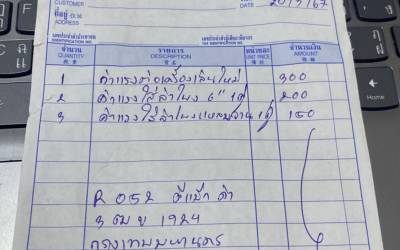 CUSTOMER
ที่อยู่
ADDRESS
DATE
เลขประจำตัวประชาชน
IDENTIFICATION NO.
เลขประจำตัวผู้เสียภาษีอากร
TAX IDENTIFICATION NO.
จำนวน รายการ หน่วยละ จำนวนเงิน
QUANTITY DESCRIPTION UNIT PRICE AMOUNT
1 ค่าแรงต่อเครื่องเล่นใหม่ 300
2 ค่าแรงใส่ลำโพง 6" 1คู่ 200
3 ค่าแรงใส่ลำโพงแหลมจาน 1คู่ 150
R 052 ดีแม็ก ดำ
3 ฒ ข 1924
กรุงเทพมหานคร